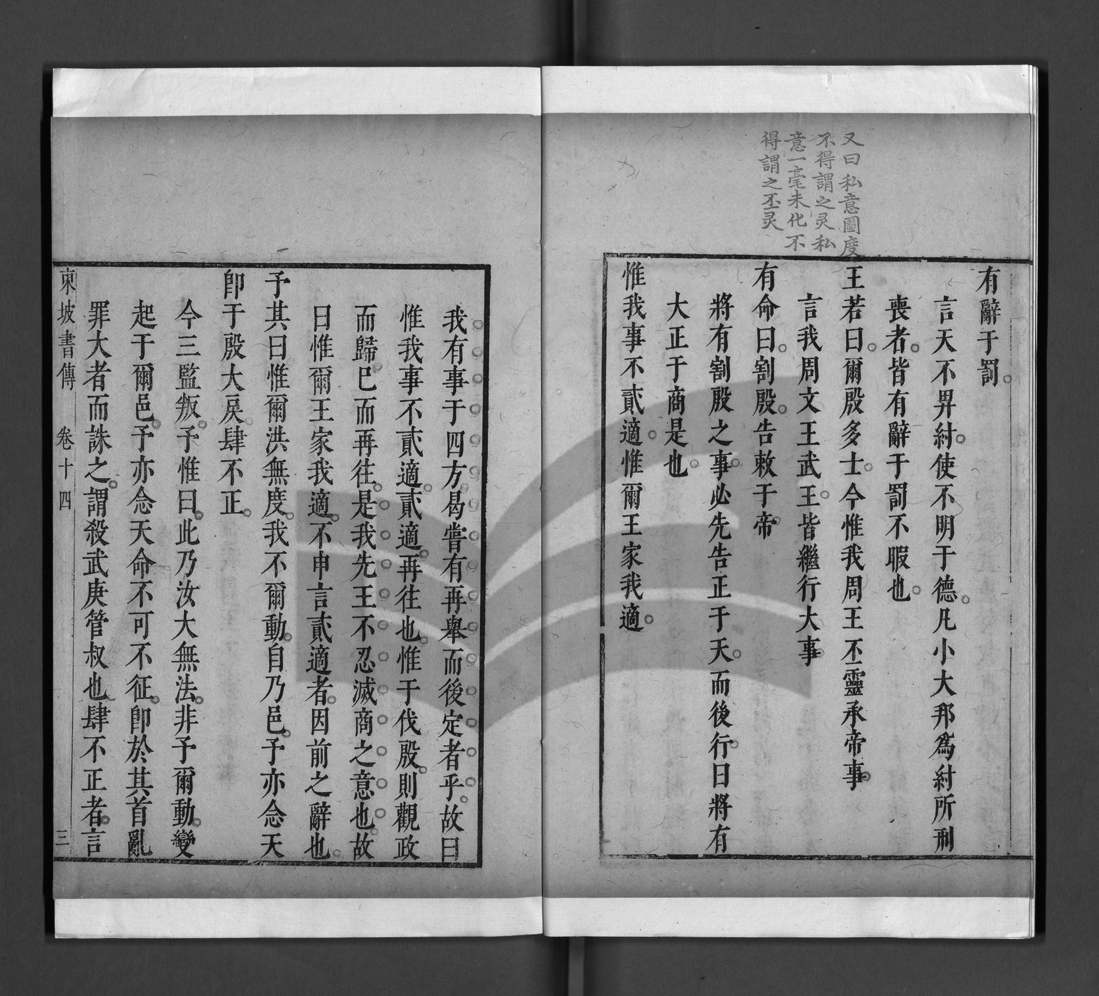 又曰私意圖度
不得謂之灵私
意一毫未化不
得謂之丕灵
有辭于罰
言天不畀紂使不明于德凡小大邦為紂所刑
喪者皆有辭于罰不暇也
王若曰爾殷多士今惟我周王丕靈承帝事
言我周文王武王皆繼行大事
有命曰割殷告敕于帝
將有割殷之事必先告正于天而後行曰將有
大正于商是也
惟我事不貳適惟爾王家我適
我有事于四方曷嘗有再舉而後定者乎故曰
惟我事不貳適貳適再往也惟于伐殷則觀政
而歸已而再往是我先王不忍滅商之意也故
曰惟爾王家我適不申言貳適者因前之辭也
予其曰惟爾洪無度我不爾動自乃邑予亦念天
卽于殷大戾肆不正
今三監叛予惟曰此乃汝大無法非予爾動變
起于爾邑予亦念天命不可不征卽於其首亂
罪大者而誅之謂殺武庚管叔也肆不正者言
東坡書傳 卷十四 三